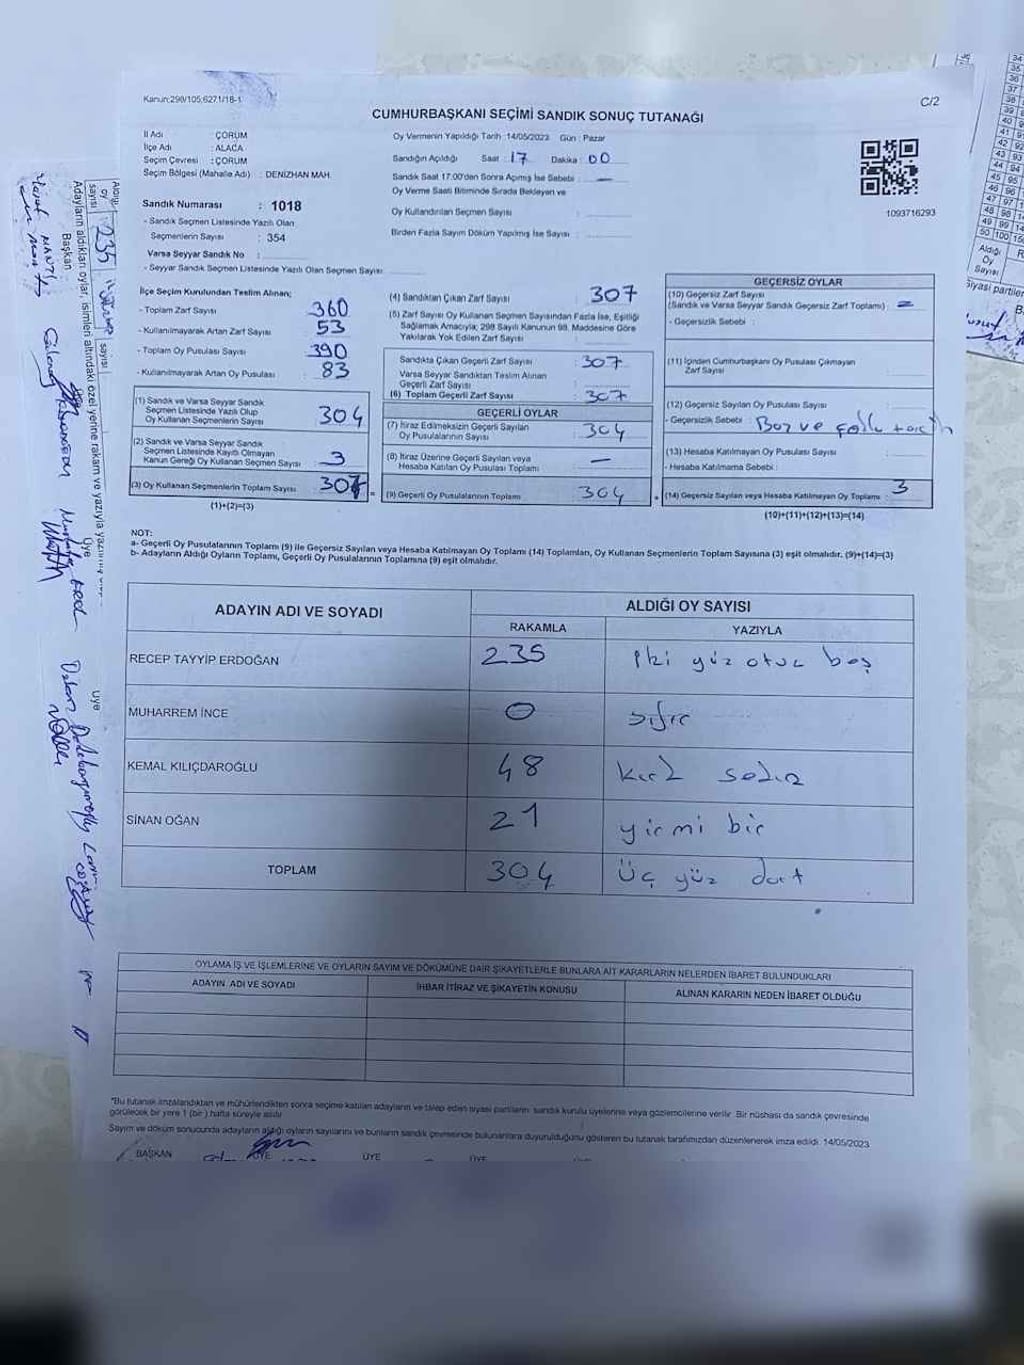 Kanun:298/105,6271/18-1
C/2
CUMHURBAŞKANI SEÇİMİ SANDIK SONUÇ TUTANAĞI
İl Adı : ÇORUM
İlçe Adı : ALACA
Seçim Çevresi : ÇORUM
Seçim Bölgesi (Mahalle Adı) : DENİZHAN MAH.
Oy Vermenin Yapıldığı Tarih :14/05/2023 Gün : Pazar
Sandığın Açıldığı Saat : 17 Dakika : 00
Sandık Saat 17.00'den Sonra Açılmış İse Sebebi : —
Oy Verme Saati Bitiminde Sırada Bekleyen ve
Oy Kullandırılan Seçmen Sayısı :
Birden Fazla Sayım Döküm Yapılmış İse Sayısı :
1093716293
Sandık Numarası : 1018
- Sandık Seçmen Listesinde Yazılı Olan
Seçmenlerin Sayısı : 354
Varsa Seyyar Sandık No :
- Seyyar Sandık Seçmen Listesinde Yazılı Olan Seçmen Sayısı
İlçe Seçim Kurulundan Teslim Alınan;
- Toplam Zarf Sayısı : 360
- Kullanılmayarak Artan Zarf Sayısı : 53
- Toplam Oy Pusulası Sayısı : 390
- Kullanılmayarak Artan Oy Pusulası : 83
(1) Sandık ve Varsa Seyyar Sandık
Seçmen Listesinde Yazılı Olup
Oy Kullanan Seçmenlerin Sayısı : 304
(2) Sandık ve Varsa Seyyar Sandık
Seçmen Listesinde Kayıtlı Olmayan
Kanun Gereği Oy Kullanan Seçmen Sayısı : 3
(3) Oy Kullanan Seçmenlerin Toplam Sayısı : 307
(1)+(2)=(3)
(4) Sandıktan Çıkan Zarf Sayısı : 307
(5) Zarf Sayısı Oy Kullanan Seçmen Sayısından Fazla İse, Eşitliği
Sağlamak Amacıyla; 298 Sayılı Kanunun 98. Maddesine Göre
Yakılarak Yok Edilen Zarf Sayısı :
Sandıkta Çıkan Geçerli Zarf Sayısı : 307
Varsa Seyyar Sandıktan Teslim Alınan
Geçerli Zarf Sayısı :
(6) Toplam Geçerli Zarf Sayısı : 307
GEÇERLİ OYLAR
(7) İtiraz Edilmeksizin Geçerli Sayılan
Oy Pusulalarının Sayısı : 304
(8) İtiraz Üzerine Geçerli Sayılan veya
Hesaba Katılan Oy Pusulası Toplamı : —
(9) Geçerli Oy Pusulalarının Toplamı : 304
GEÇERSİZ OYLAR
(10) Geçersiz Zarf Sayısı
(Sandık ve Varsa Seyyar Sandık Geçersiz Zarf Toplamı) :
- Geçersizlik Sebebi :
(11) İçinden Cumhurbaşkanı Oy Pusulası Çıkmayan
Zarf Sayısı :
(12) Geçersiz Sayılan Oy Pusulası Sayısı :
- Geçersizlik Sebebi : Boş ve
(13) Hesaba Katılmayan Oy Pusulası Sayısı :
- Hesaba Katılmama Sebebi :
(14) Geçersiz Sayılan veya Hesaba Katılmayan Oy Toplamı : 3
(10)+(11)+(12)+(13)=(14)
NOT:
a- Geçerli Oy Pusulalarının Toplamı (9) ile Geçersiz Sayılan veya Hesaba Katılmayan Oy Toplamı (14) Toplamları, Oy Kullanan Seçmenlerin Toplam Sayısına (3) eşit olmalıdır. (9)+(14)=(3)
b- Adayların Aldığı Oyların Toplamı, Geçerli Oy Pusulalarının Toplamına (9) eşit olmalıdır.
ADAYIN ADI VE SOYADI
ALDIĞI OY SAYISI
RAKAMLA YAZIYLA
RECEP TAYYİP ERDOĞAN 235 iki yüz otuz beş
MUHARREM İNCE 0 sıfır
KEMAL KILIÇDAROĞLU 48 kırk sekiz
SİNAN OĞAN 21 yirmi bir
TOPLAM 304 Üç yüz dört
OYLAMA İŞ VE İŞLEMLERİNE VE OYLARIN SAYIM VE DÖKÜMÜNE DAİR ŞİKAYETLERLE BUNLARA AİT KARARLARIN NELERDEN İBARET BULUNDUKLARI
ADAYIN ADI VE SOYADI İHBAR İTİRAZ VE ŞİKAYETİN KONUSU ALINAN KARARIN NEDEN İBARET OLDUĞU
"Bu tutanak imzalandıktan ve mühürlendikten sonra seçime katılan adayların ve talep eden siyasi partilerin sandık kurulu üyelerine veya gözlemcilerine verilir. Bir nüshası da sandık çevresinde
görülecek bir yere 1 (bir) hafta süreyle asılır.
Sayım ve döküm sonucunda adayların aldığı oyların sayılarını ve bunların sandık çevresinde bulunanlara duyurulduğunu gösteren bu tutanak tarafımızdan düzenlenerek imza edildi. 14/05/2023
BAŞKAN ÜYE ÜYE ÜYE
Adayların aldıkları oylar, isimleri altındaki özel yerine rakam ve yazıyla
Başkan Üye Üye
oy sayısı 235 sayısı
Aldığı
Oy
Sayısı